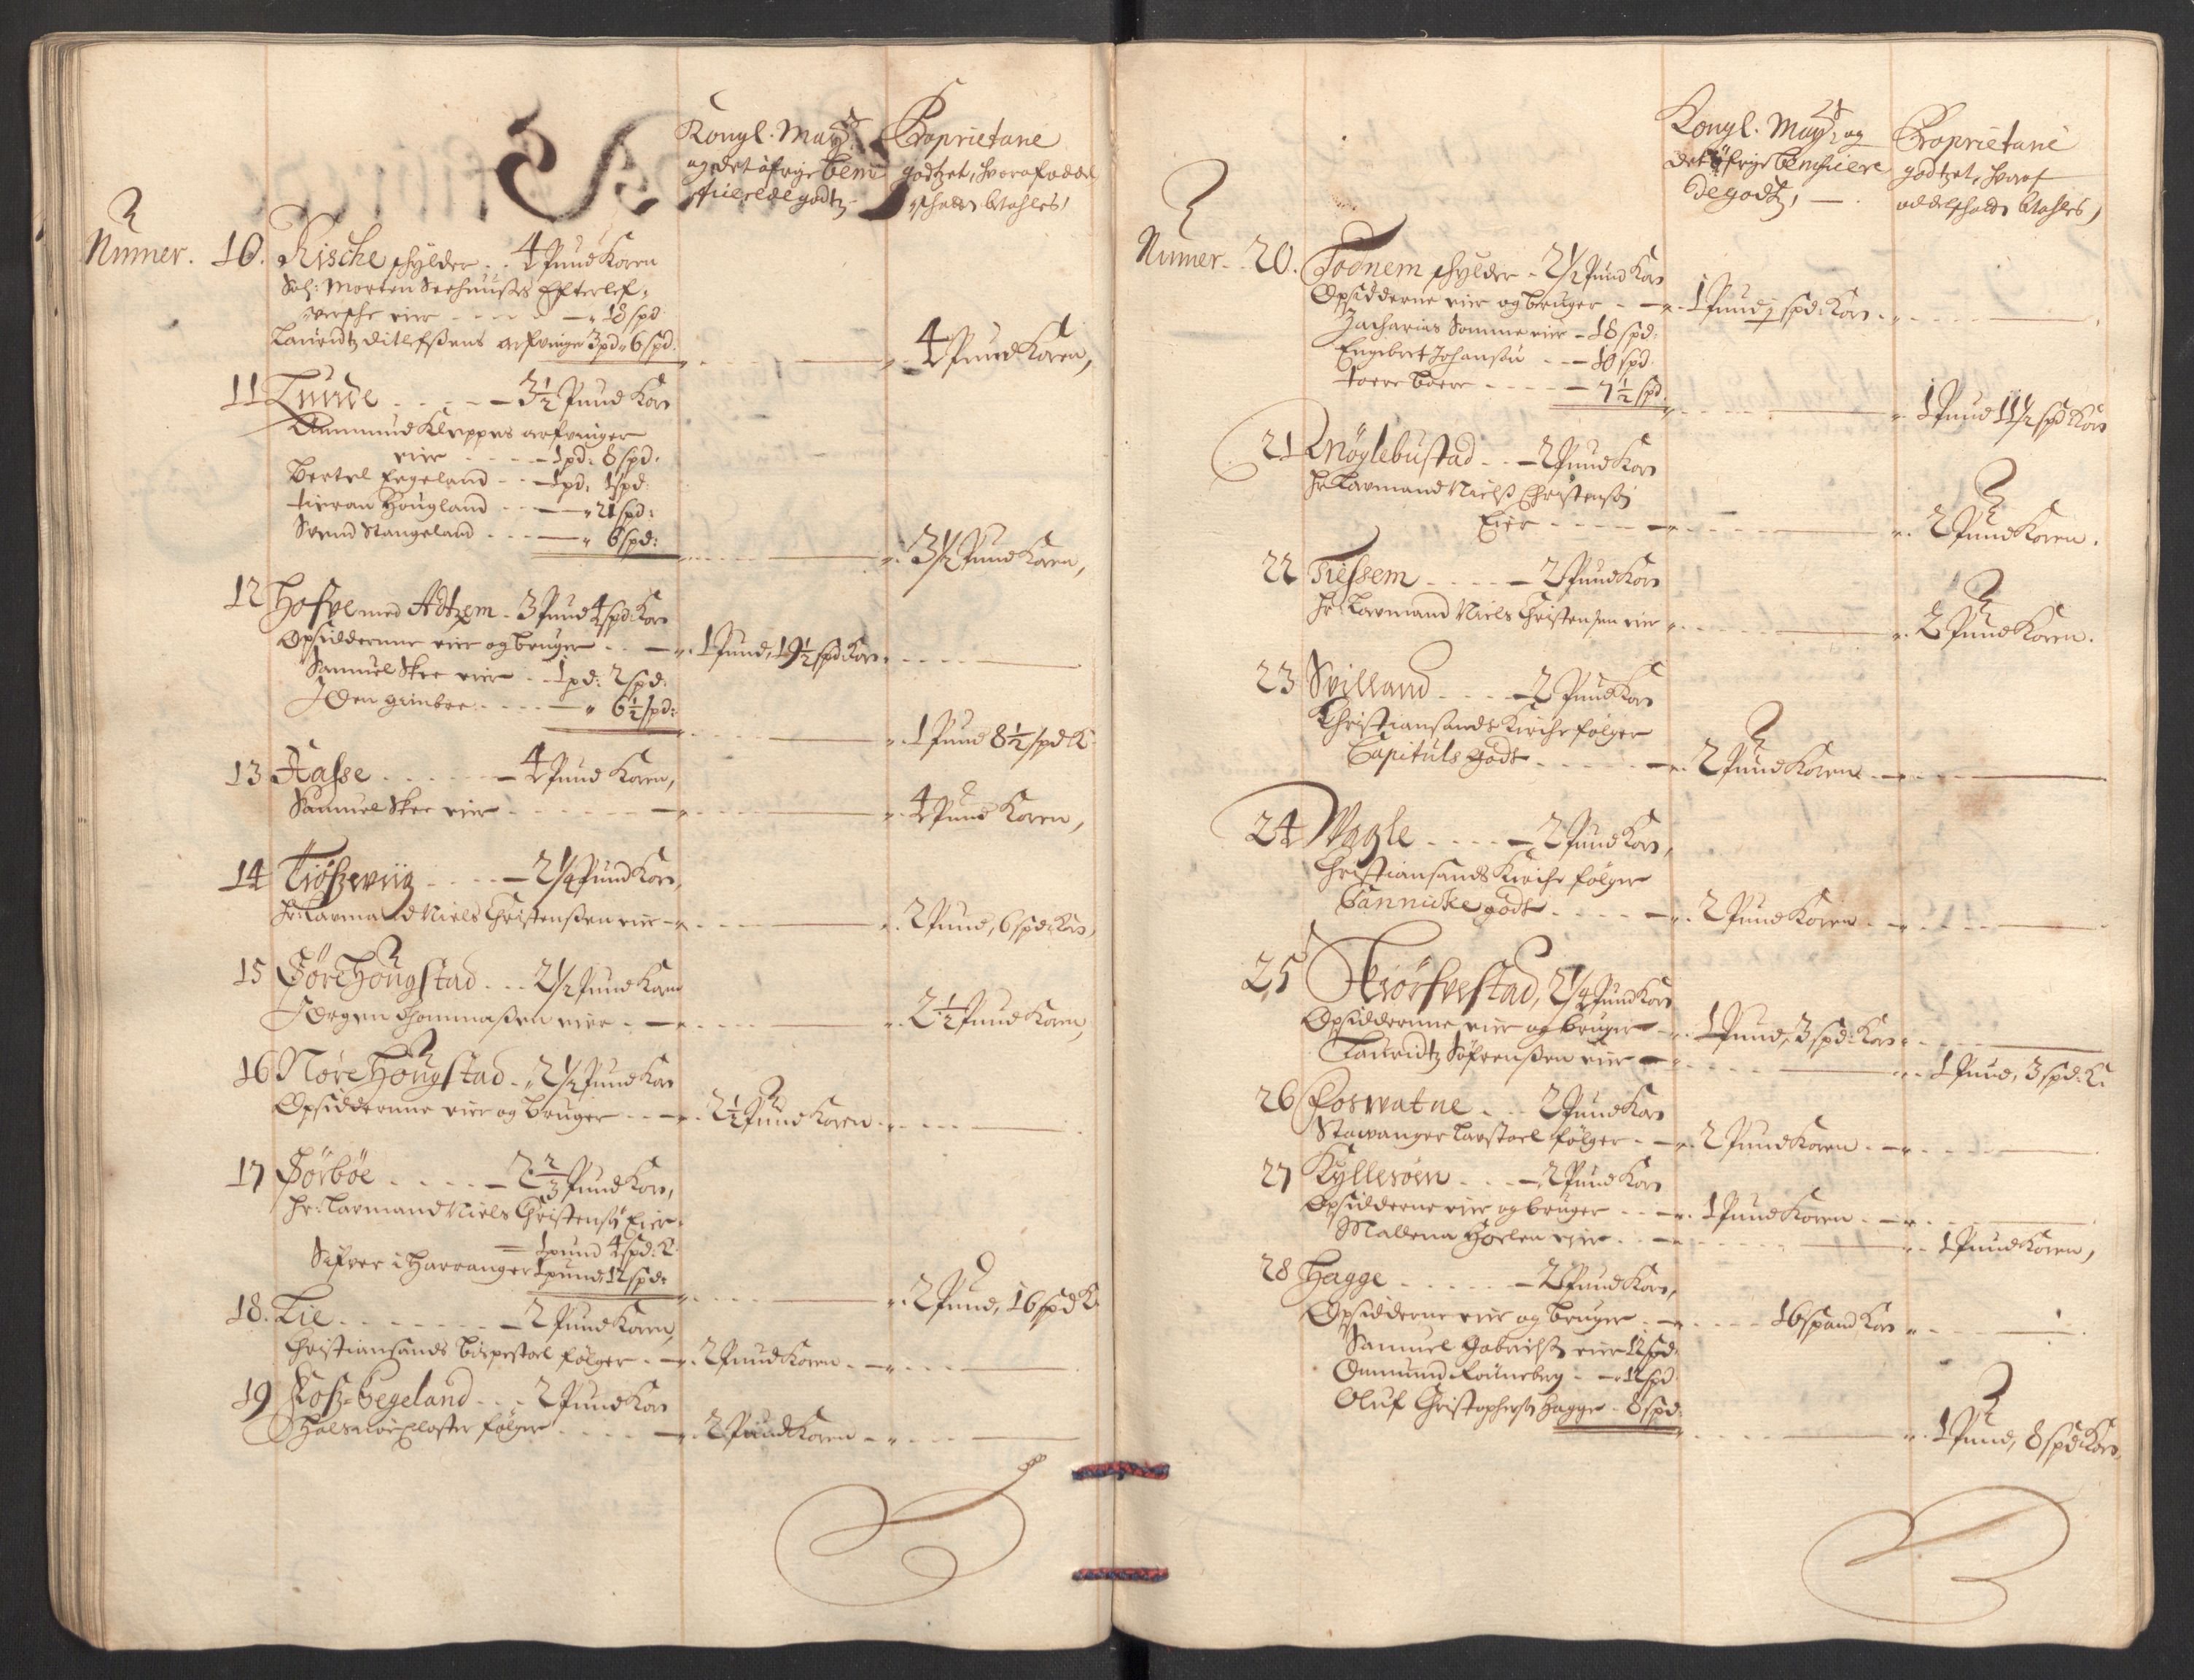 Kongl. Mayts
og det öfrige bene
ficerede godtz
Proprietarie
godtzet, hvoraf oddel
schatt btahles,
Numer. 10. Rische schylder - 4 Pund Koren
Sal: Morten Seehuußes Efterlef:
wersche eier - 18 spd
Lauridtz Ditlefßens arfvinger 3 pd 6 spd: 4 Pund Koren,
11 Lunde - 3½ Pund Korn
Ammund Kleppes arfvinger
eier - 1 pd: 8 spd:
Bertel Ergeland - 1 pd, 1 spd:
Hougland - 21 spd:
Svend Stangeland - 6 spd: 3½ Pund Koren,
12 Hofve med Adtzem - 3 Pund 4 spd Korn
Opsidderenne eier og bruger - 1 Pund, 19½ spd Korn
Samuel Skee eier - 1 pd: 2 spd:
Iden - 6½ spd: 1 Pund 8½ spd K
13 Aasse - 4 Pund Koren,
Samuel Skee eier - 4 Pund Koren,
14 Tiößewiig - 2¼ Pund Korn,
Hr: Laumand Niels Christenßen eier - 2 Pund, 6 spd: Korn,
15 Söre Hougstad - 2½ Pund Korn
Jörgen Thommaßen eier - 2½ Pund Koren,
16 Nöre Hougstad - 2½ Pund Korn
Opsidderenne eier og bruger - 2½ Pund Koren
17 Sörböe - 2⅔ Pund Korn,
Hr: Laumand Niels Christensön Eier
1 pund 4 spd: K
Sifver i Harranger 1 pund 12 spd: 2 Pund, 16 spd K
18. Lie - 2 Pund Koren,
Christiansands bispestoel fölger - 2 Pund Koren
19 Foß-Eegeland - 2 Pund Korn
Halsnöe Closter fölger - 2 Pund Koren
Kongl. Mayts, og
det öfrige benficere
de godtz,
Proprietarie
godtzet, hvoraf
oddelschatt btahles,
Numer. 20. Fodnem schylder - 2½ Pund Korn
Opsidderne eier og bruger - 1 Pund 1 spd: Korn
Zacharias Somme eier - 18 spd:
Engebret Johansön - 10 spd
Toere Boere - 7½ spd 1 Pund 11½ spd Korn
21 Möglebustad - 2 Pund Korn
Hr: Laumand Nielß Christensön
Eier - 2 Pund Koren.
22 Tiessem - 2 Pund Korn
Hr: Laumand Niels Christensen eier - 2 Pund Koren.
23 Svilland - 2 Pund Korn
Christiansands Kirche fölger
Capituls godt - 2 Pund Koren
24 Wagle - 2 Pund Korn,
Christiansands Kirche fölger
Cannicke godt - 2 Pund Koren
25 Skiörfvestad, 2¼ Pund Korn
Opsidderenne eier og bruger - 1 Pund, 3 spd: Korn
Lauridtz Söfrenßen eier - 1 Pund, 3 spd: K:
26 Foswatne - 2 Pund Korn
Stawanger Laustoel fölger - 2 Pund Koren
27 Kyllesöen - 2 Pund Korn
Opsidderne eier og bruger - 1 Pund Koren
Mallena Hoelen eier - 1 Pund Koren,
28 Hagge - 2 Pund Korn,
Opsidderne eier og bruger - 16 spand Korn
Samuel Gabrielsön eier 12 spd:
Ommund Founeberg - 12 spd
Oluf Christophersön Hagge - 8 spd: 1 Pund, 8 spd Korn,